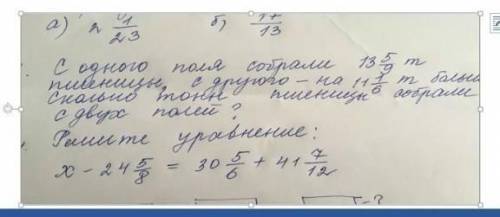 а) 2 1/23 б) 17/13
С одного поля собрали 13 5/9 т
пшеницы, с другого – на 11 1/6 т больш
сколько тонн пшеницы собрали
с двух полей?
Решите уравнение:
х – 24 5/8 = 30 5/6 + 41 7/12